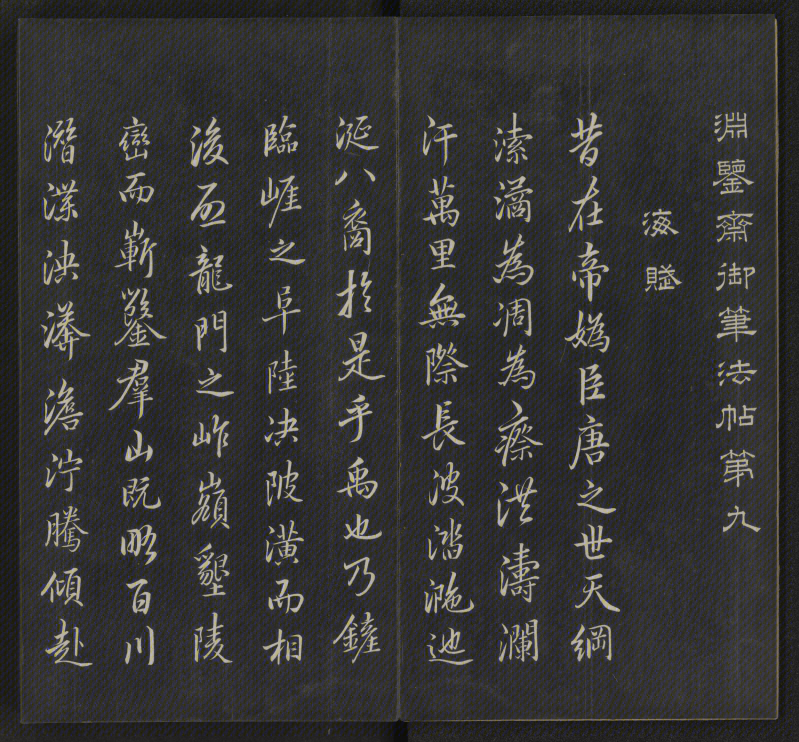 淵鑒齋御筆法帖第九
海賦
昔在帝媯臣唐之世天綱
潫潏為凋為瘵洪濤瀾
汗萬里無際長波涾迤
涎八裔於是乎禹也乃鏟
臨崕之阜陸决陂潢而相
浚啟龍門之岞嶺墾陵
巒而嶄鑿羣山既略百川
潛渫泱漭澹泞騰傾赴